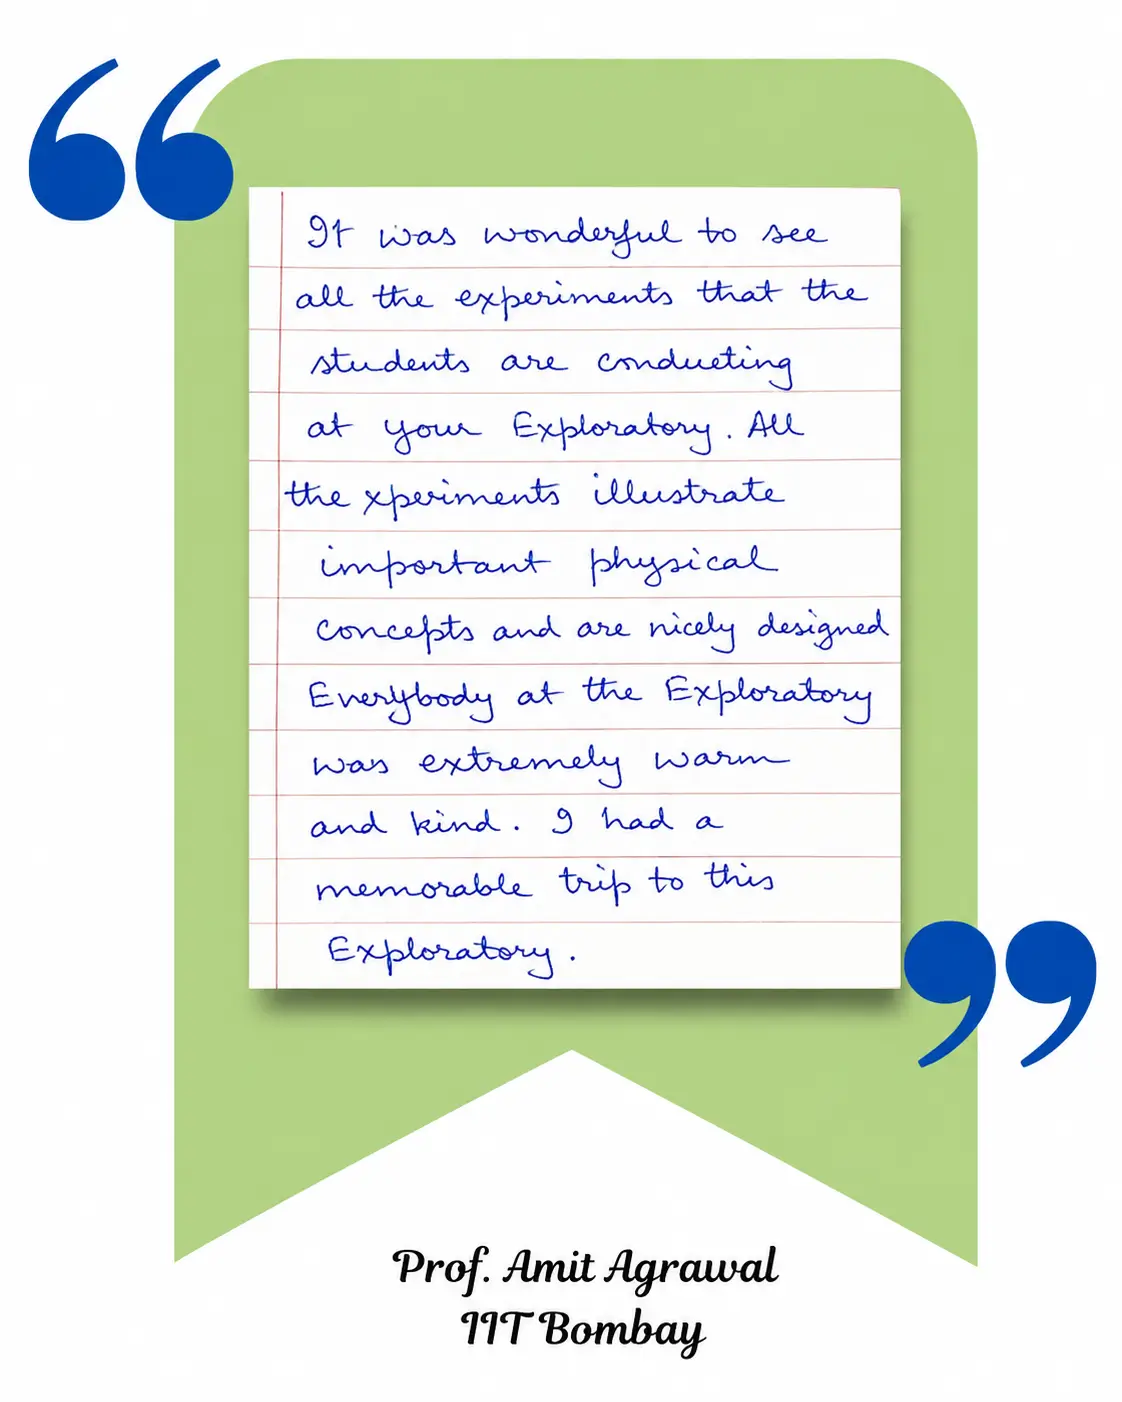 It was wonderful to see
all the experiments that the
students are conducting
at your Exploratory. All
the xperiments illustrate
important physical
concepts and are nicely designed
Everybody at the Exploratory
was extremely warm
and kind. I had a
memorable trip to this
Exploratory.
Prof. Amit Agrawal
IIT Bombay